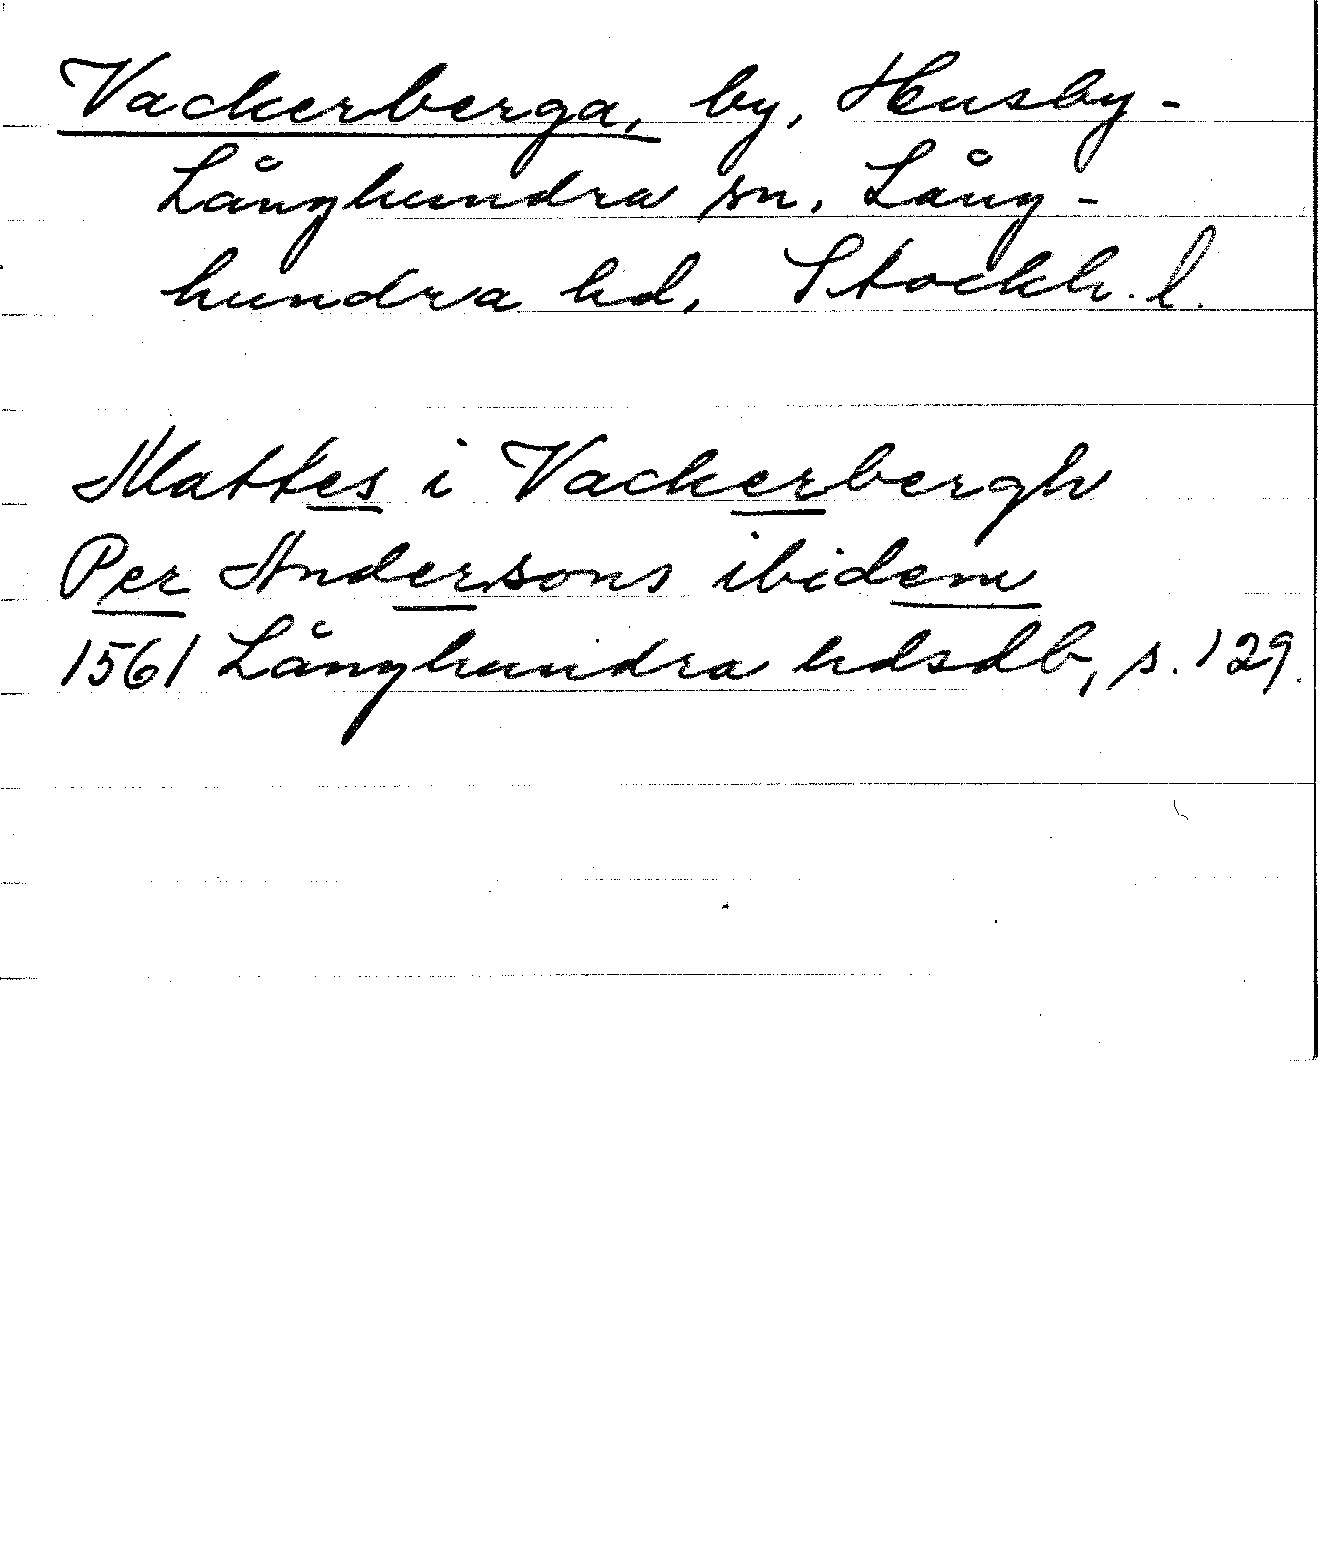 Vackerberga, by, Husby-
Långhundra sn. Lång-
hundra hd, Stockh. l.
Mattes i Vackerbergh
Per Andersons ibidem
1561 Långhundra hdsdb, s. 129.